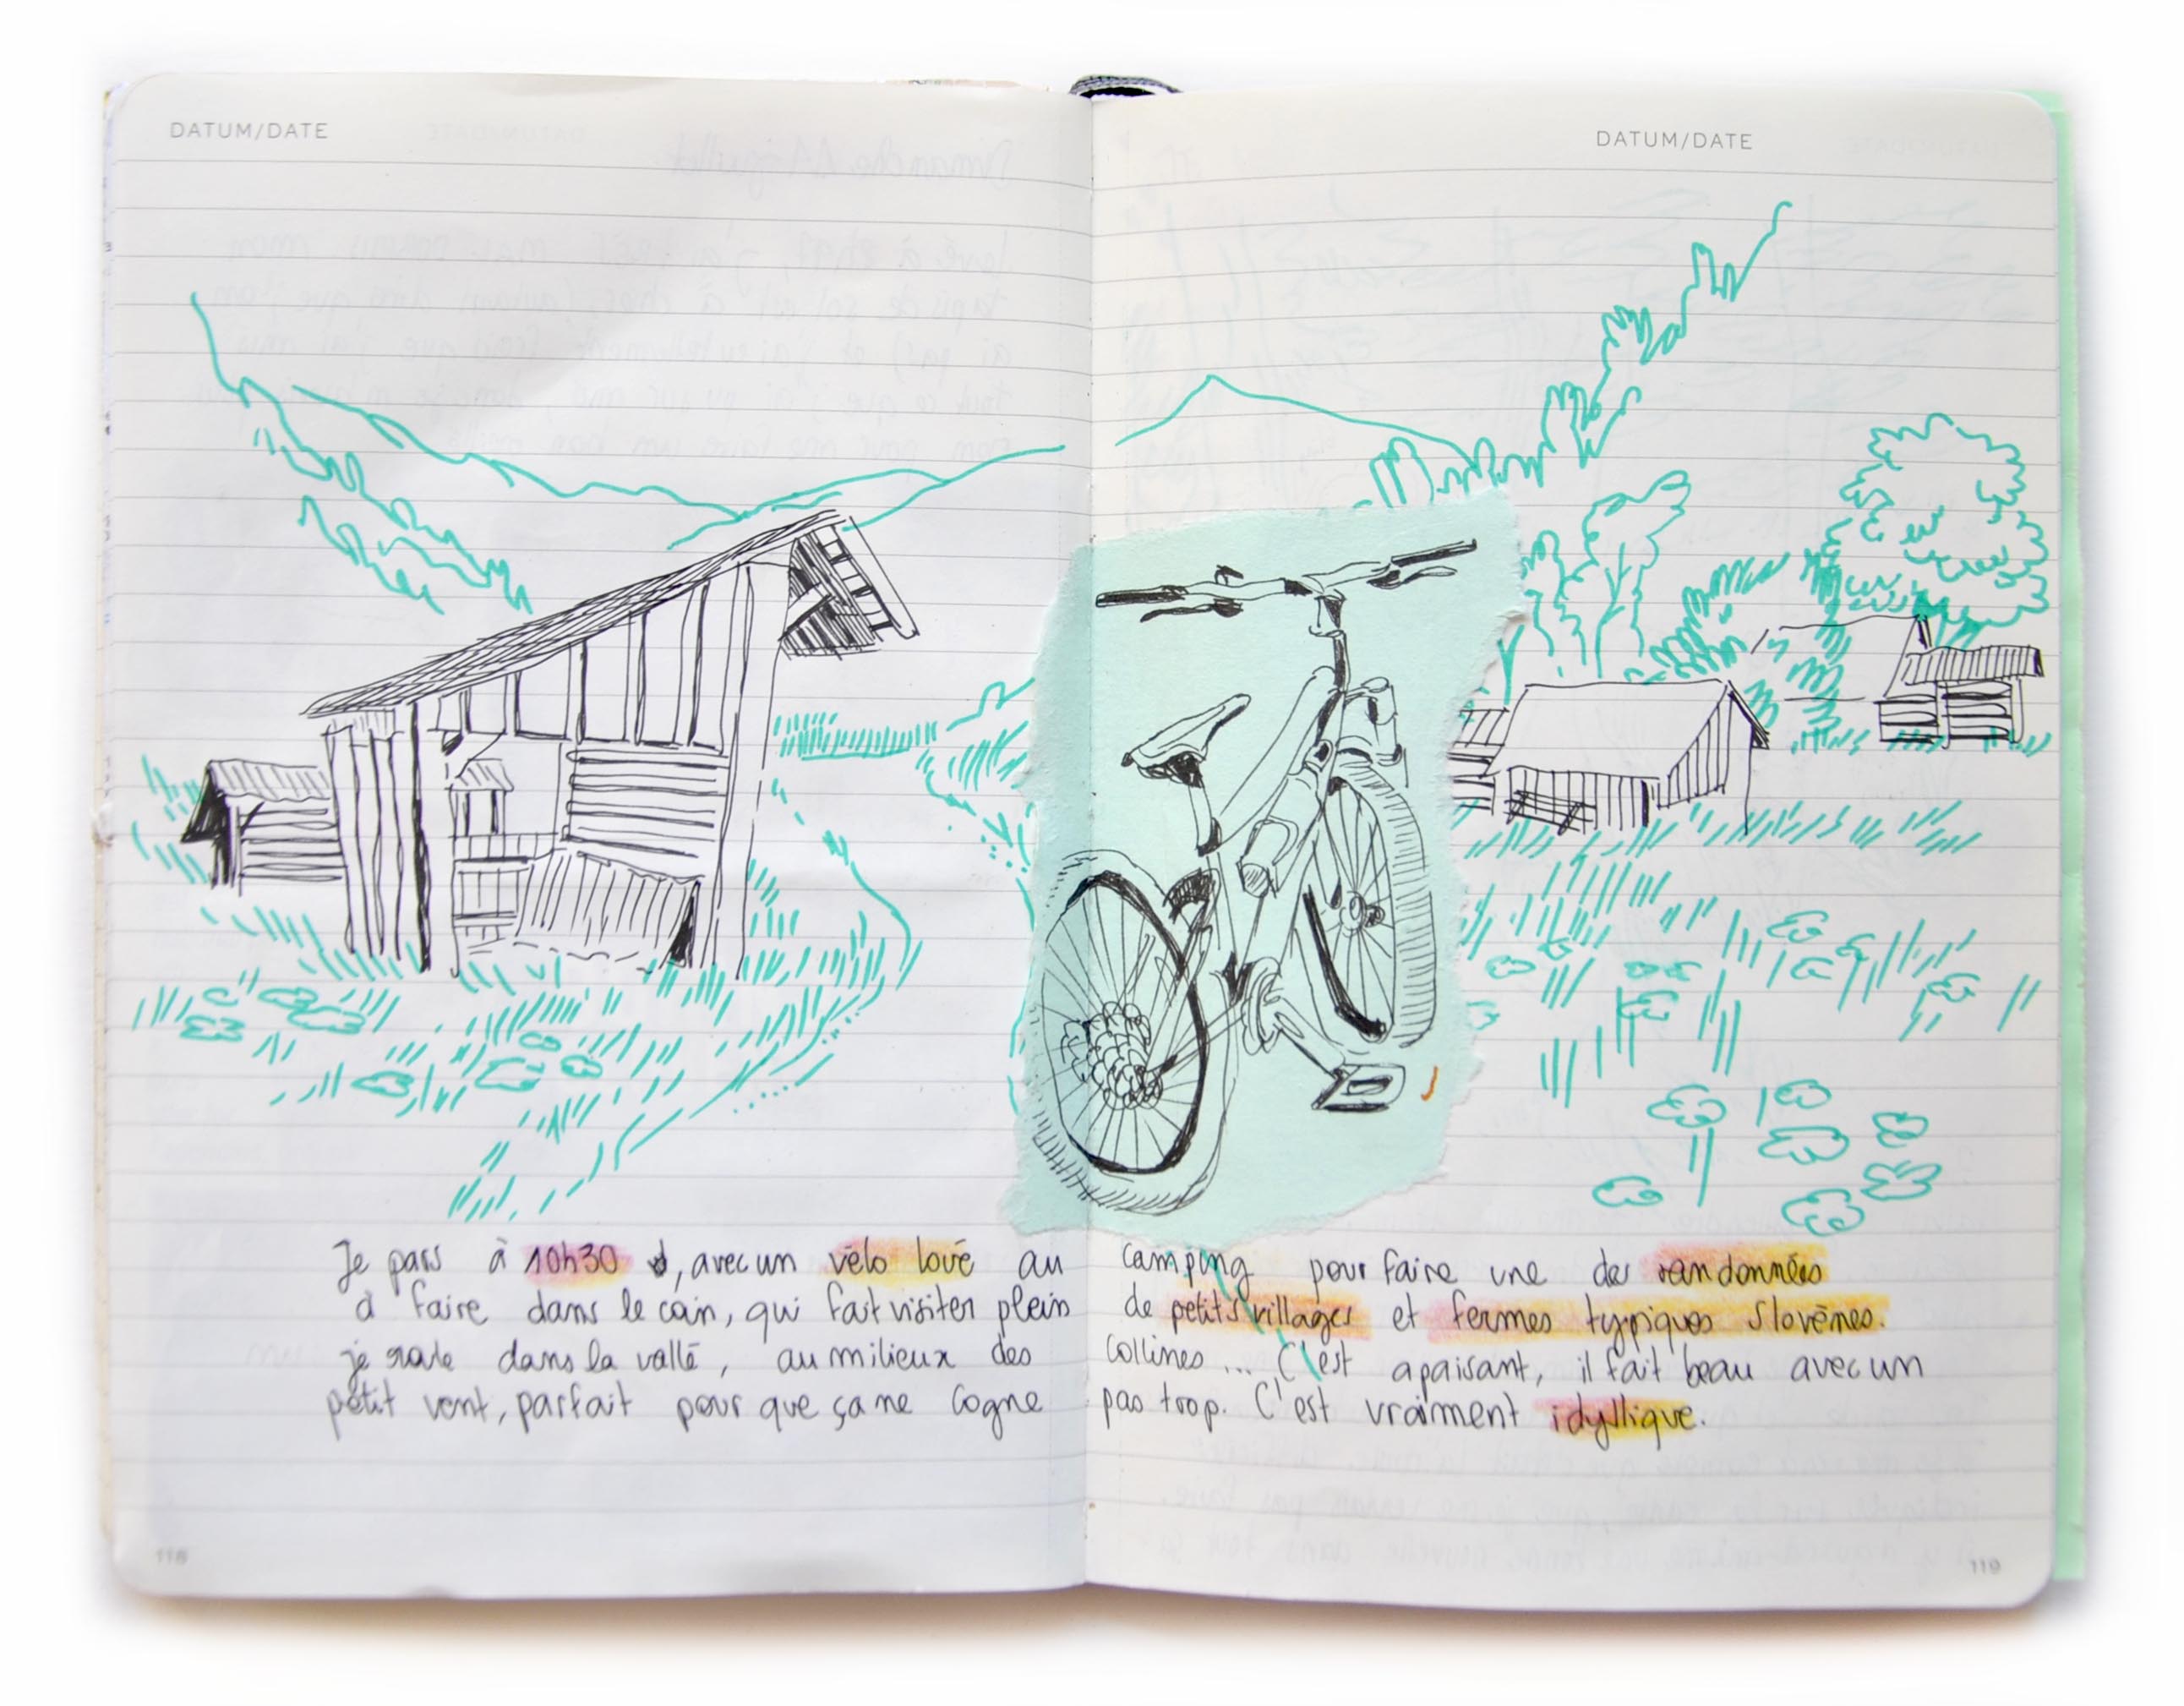 DATUM/DATE
DATUM/DATE
Je pars à 10h30, avec un vélo loué au camping pour faire une des randonnées
à faire dans le coin, qui fait visiter plein de petits villages et fermes typiques Slovènes.
je roule dans la vallé, au milieux des collines... C'est apaisant, il fait beau avec un
petit vent, parfait pour que ça ne cogne pas trop. C'est vraiment idyllique.
118
119